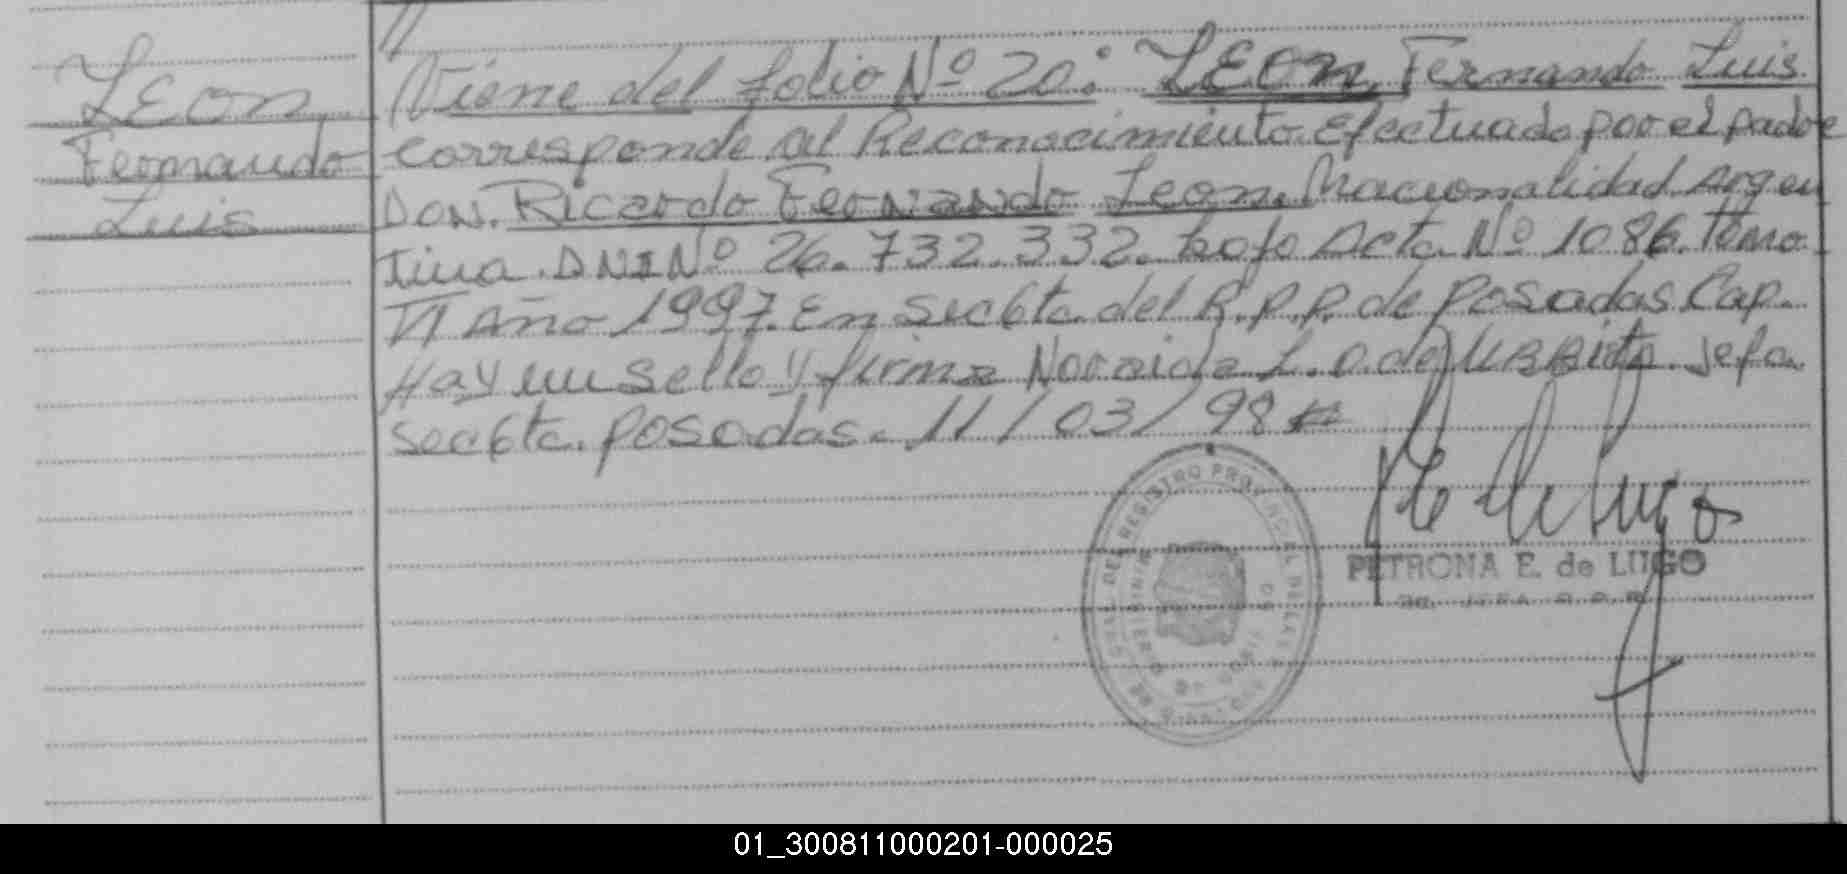 LEON
Fernando
Luis
//
Viene del folio Nº 20: LEON, Fernando Luis.
corresponde al Reconocimiento efectuado por el padre
Don. Ricardo Fernando Leon. Nacionalidad Argen
tina. DNI Nº 26.732.332. bajo Acta Nº 1086. Tomo
VI Año 1997. En Secbta. del R.P.P. de Posadas Cap.
Hay un sello y firma L. O. de Jefa.
Secbta. Posadas. 11/03/98
REGISTRO PROVINCIAL DE LAS
PETRONA E. de LUGO
01_300811000201-000025